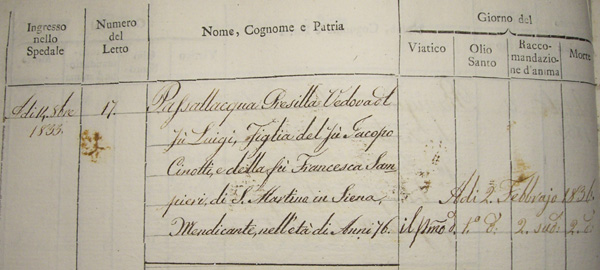 Ingresso nello Spedale
Numero del Letto
Nome, Cognome e Patria
Giorno del
Viatico
Olio Santo
Racco-mandazio-ne d'anima
Morte
Adi 14, 8bre 1835.
17.
Passallacqua Presilla Vedova dl
fù Luigi, Figlia del fù Jacopo
Cinotti, e della fù Francesca Sam
pieri, di S. Martino in Siena,
Mendicante, nell'età di Anni 76.
Adi 2. Febbrajo 1836.
il pmo d. 1.º d: 2. sud: 2. d: